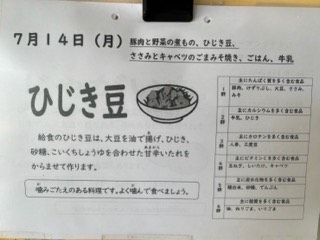 7月14日（月）
豚肉と野菜の煮もの、ひじき豆、
ささみとキャベツのごまみそ焼き、ごはん、牛乳
ひじき豆
給食のひじき豆は、大豆を油で揚げ、ひじき、
砂糖、こいくちしょうゆを合わせた甘辛いたれを
からませて作ります。
噛みごたえのある料理です。よく噛んで食べましょう。
1群
主にたんぱく質を多く含む食品
豚肉、けずりぶし、大豆、ささみ、
みそ
2群
主にカルシウムを多く含む食品
牛乳、ひじき
3群
主にカロテンを多く含む食品
人参、三度豆
4群
主にビタミンCを多く含む食品
玉ねぎ、しいたけ、キャベツ
5群
主に炭水化物を多く含む食品
精白米、砂糖、でんぷん
6群
主に脂質を多く含む食品
油、ねりごま、いりごま